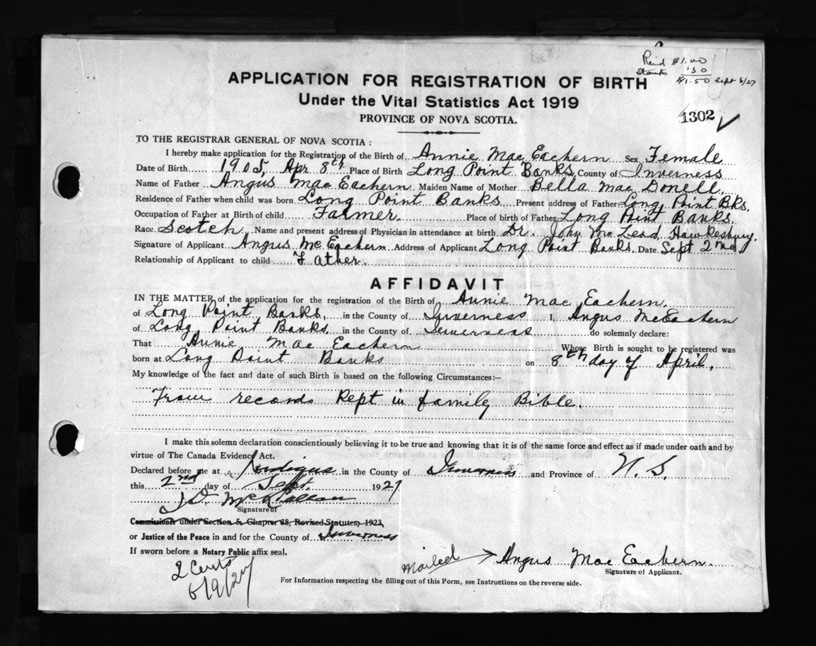 Paid $1.00
Stamps .50
$1.50 Sept 6/27
APPLICATION FOR REGISTRATION OF BIRTH
Under the Vital Statistics Act 1919
PROVINCE OF NOVA SCOTIA.
1302
TO THE REGISTRAR GENERAL OF NOVA SCOTIA :
I hereby make application for the Registration of the Birth of Annie Mac Eachern Sex Female
Date of Birth 1905, Apr 8th Place of Birth Long Point Banks County of Inverness
Name of Father Angus Mac Eachern Maiden Name of Mother Bella Mac Donell
Residence of Father when child was born Long Point Banks Present address of Father Long Point Bks.
Occupation of Father at Birth of child Farmer. Place of birth of Father Long Point Banks.
Race Scotch Name and present address of Physician in attendance at birth Dr. John Mc Lead Hawkesbury.
Signature of Applicant Angus Mc Eachern Address of Applicant Long Point Banks. Date Sept 2nd
Relationship of Applicant to child Father.
AFFIDAVIT
IN THE MATTER of the application for the registration of the Birth of Annie Mac Eachern.
of Long Point Banks, in the County of Inverness I, Angus McEachern
of Long Point Banks in the County of Inverness do solemnly declare:
That Annie Mac Eachern Whose Birth is sought to be registered was
born at Long Point Banks on 8th day of April.
My knowledge of the fact and date of such Birth is based on the following Circumstances:—
From records Kept in family Bible.
I make this solemn declaration conscientiously believing it to be true and knowing that it is of the same force and effect as if made under oath and by
virtue of The Canada Evidence Act.
Declared before me at in the County of Inverness and Province of N. S.
this 2nd day of Sept. 1927
Signature of
Commissioner under Section 5, Chapter 38, Revised Statutes, 1923,
or Justice of the Peace in and for the County of Inverness
If sworn before a Notary Public affix seal.
mailed Angus Mac Eachern.
Signature of Applicant.
2 Certs
6/9/27
For Information respecting the filling out of this Form, see Instructions on the reverse side.